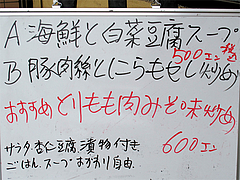 A 海鮮と白菜豆腐スープ
500エン
B 豚肉絲とにらもやし炒め
おすすめ とりもも肉みそ味炒め
600エン
サラダ.杏仁豆腐漬物付き
ごはん.スープおかわり自由.